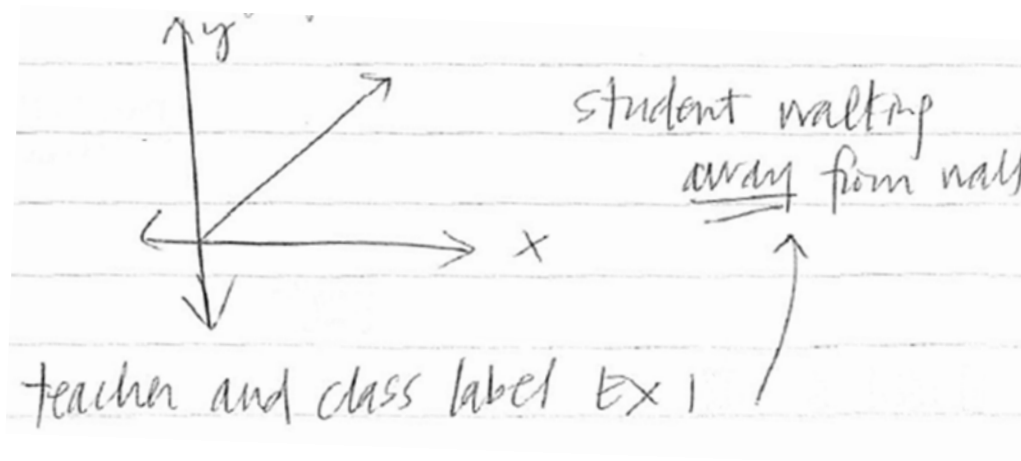 y
student walking
away from wall
x
teacher and class label Ex 1